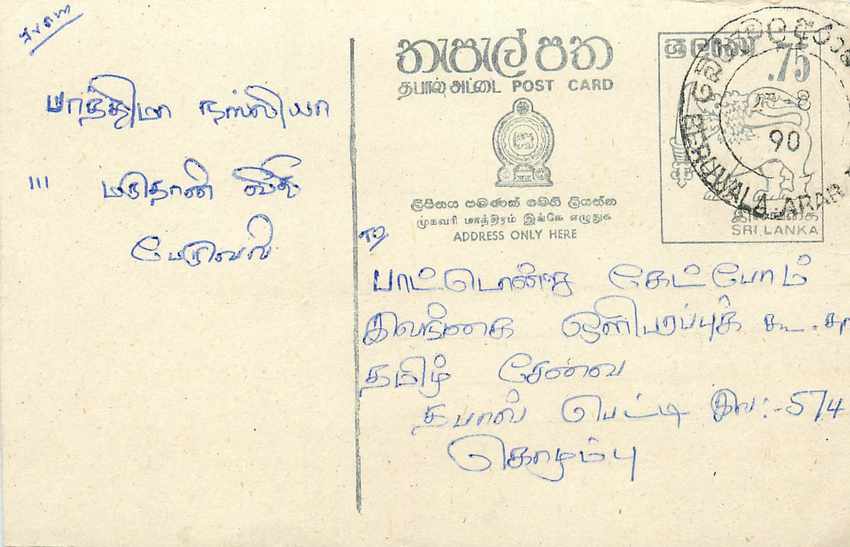 பாத்திமா நஸ்லியா
111 மருதானி வீதி
பேருவல
තැපැල් පත
தபால் அட்டை POST CARD
ලිපිනය පමණක් මෙහි ලියන්න
முகவரி மாத்திரம் இங்கே எழுதுக
ADDRESS ONLY HERE
ශ්‍රී ලංකා
.75
இலங்கை
SRI LANKA
BERUWALA
8
90
To
பாட்டொன்று கேட்போம்
இலங்கை ஒளிபரப்புக் கூ.
தமிழ் சேவை
தபால் பெட்டி இல:- 574
கொழும்பு